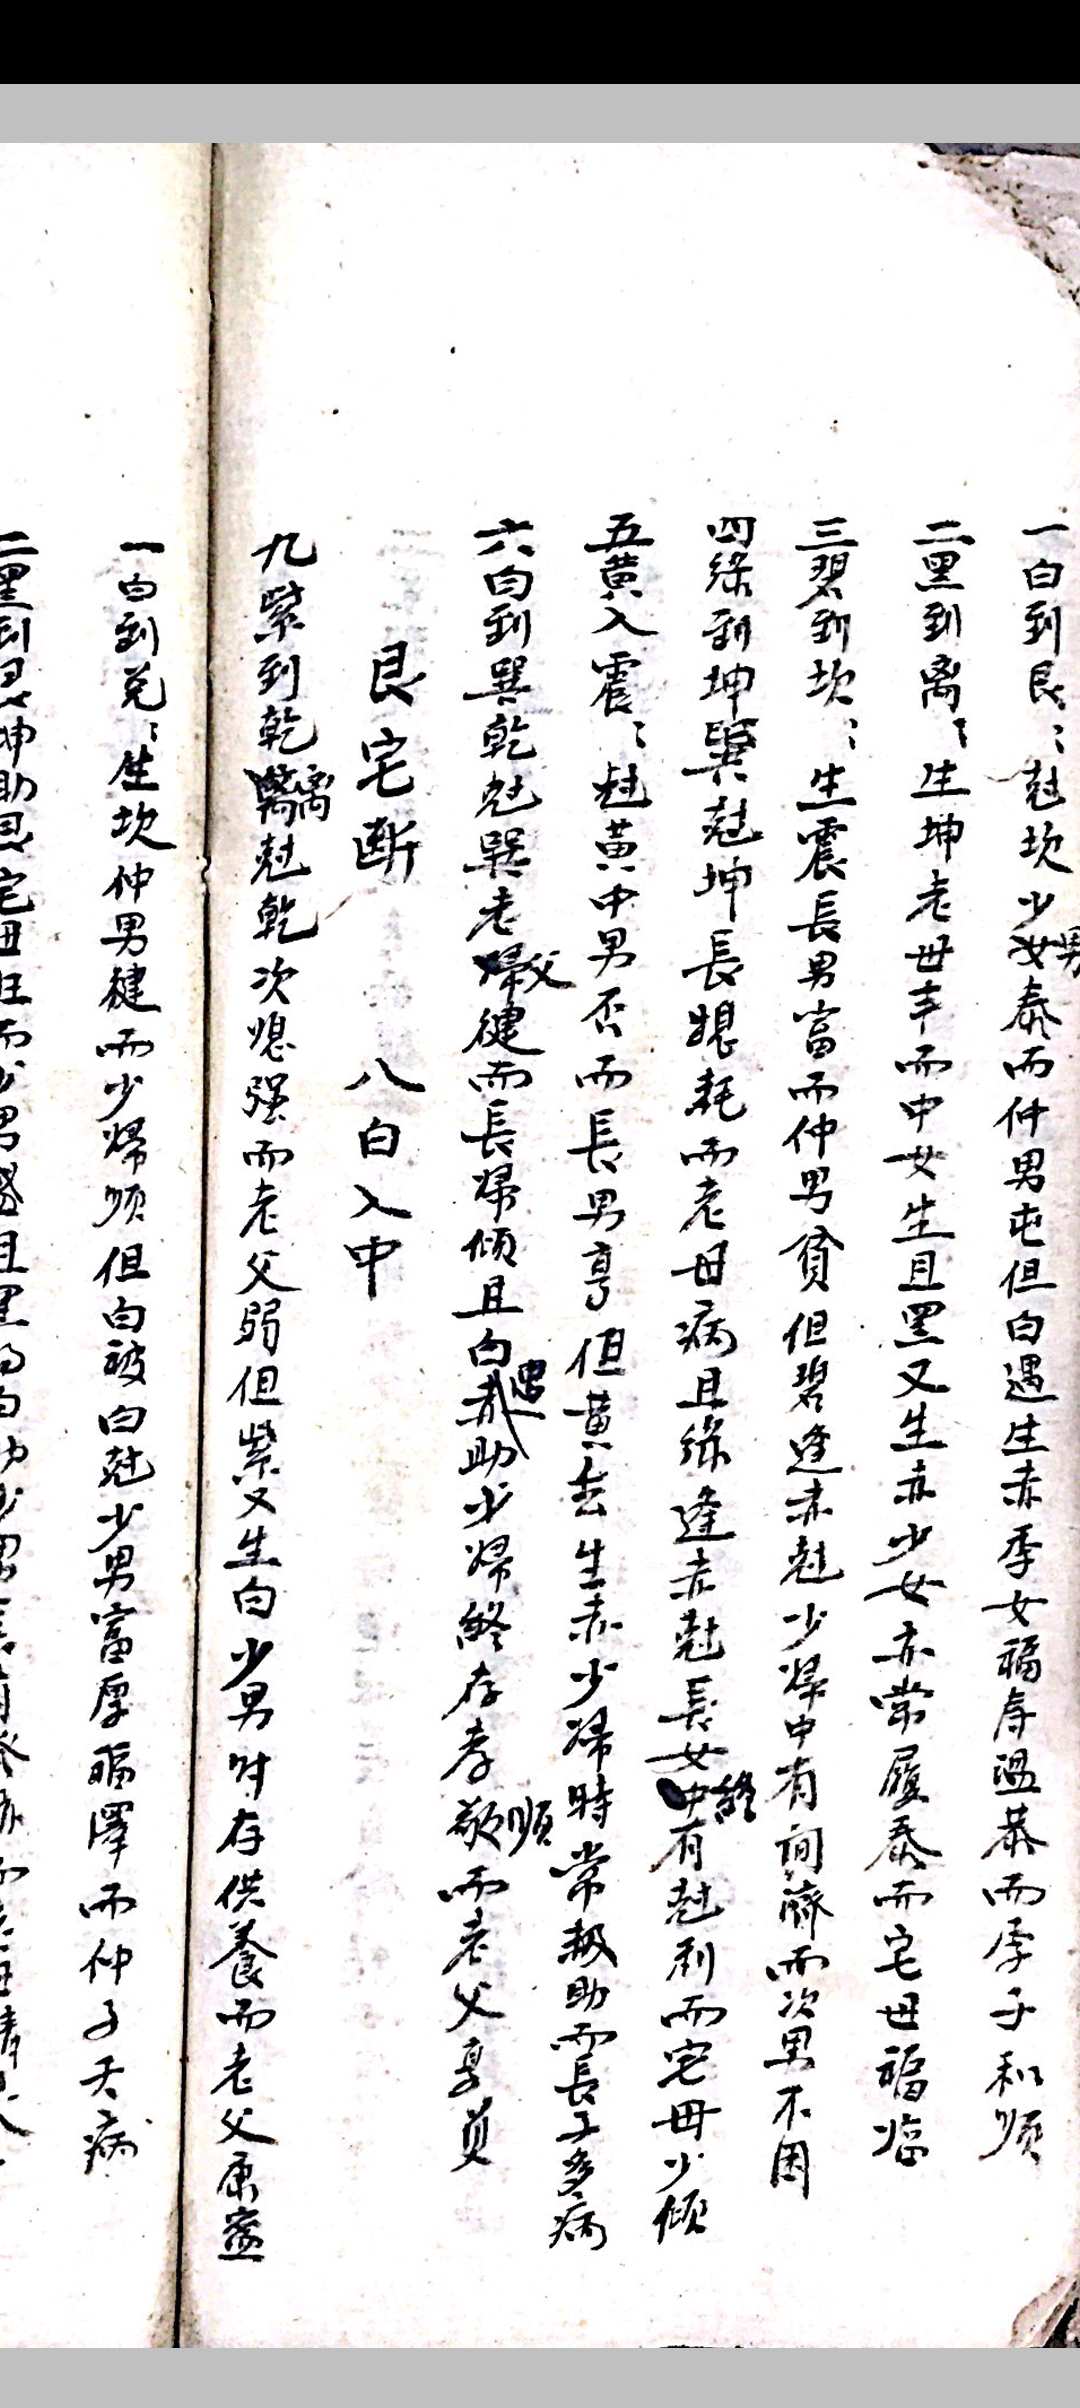 一白到艮〻尅坎少男泰而仲男屯但白遇生赤季女福寿温恭而季子和順
二黑到离〻生坤老母丰而中女生且黑又生赤少女亦常履泰而宅母福临
三碧到坎〻生震長男富而仲男貧但碧逢赤尅少婦中有间癠而次男不困
四绿到坤巽尅坤長媳耗而老母病且绿逢赤尅長女終有尅利而宅母少傾
五黄入震〻尅黄中男否而長男亨但黄去生赤少婦時常报助而長子多病
六白到巽乾尅巽老父健而長婦倾且白遇赤助少婦終存孝順而老父享
艮宅断 八白入中
九紫到乾离尅乾次媳强而老父弱但紫又生白少男时存供養而老父康
一白到兑〻生坎仲男健而少婦顺但白被白尅少男富厚福澤而仲子夭病
二黑到艮坤助艮宅母旺而少男盛且黑